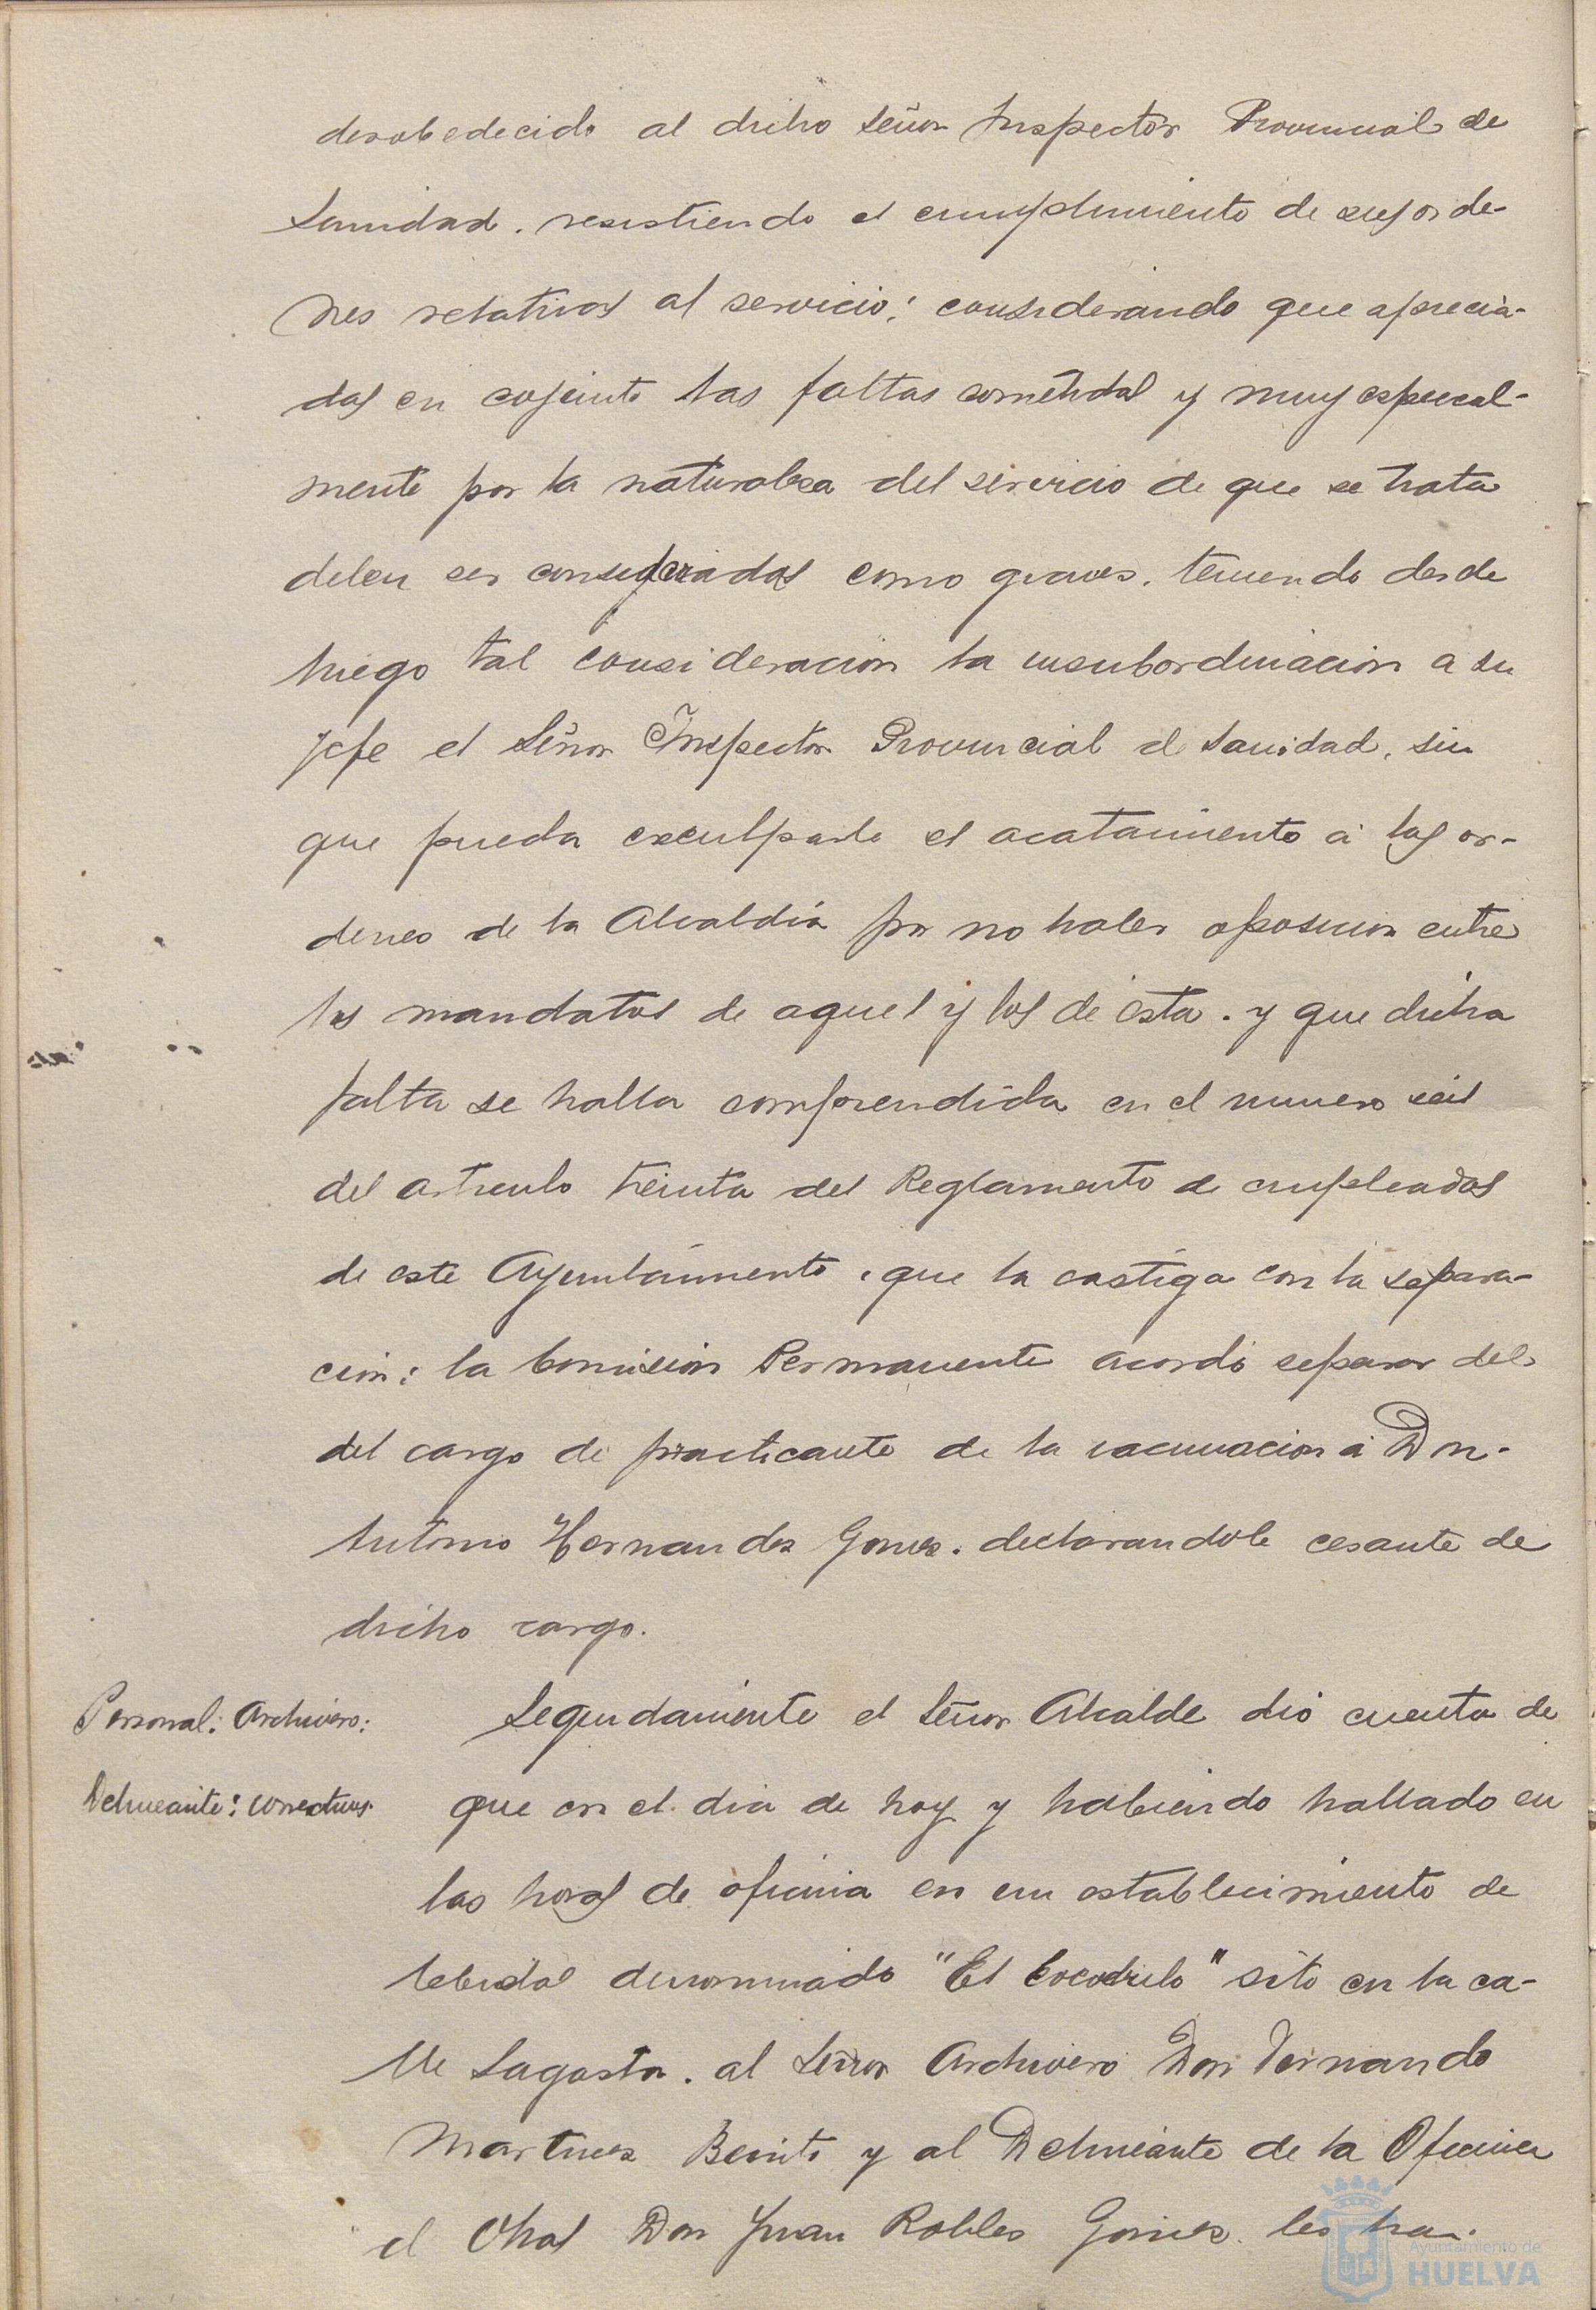 desobedecido al dicho Señor Inspector Provincial de
Sanidad. resistiendo el cumplimiento de sus orde-
nes relativas al servicio; considerando que aprecia-
das en cojunto las faltas cometidas y muy especial-
mente por la naturaleza del servicio de que se trata
deben ser consideradas como graves. teniendo desde
luego tal consideracion la insubordinacion a su
jefe el Señor Inspector Provincial de Sanidad, sin
que pueda exculparle el acatamiento a las or-
denes de la Alcaldía por no haber oposicion entre
los mandatos de aquel y los de ésta. y que dicha
falta se halla comprendida en el numero seis
del articulo treinta del Reglamento de empleados
de este Ayuntamiento, que la castiga con la separa-
cion: la Comision Permanente acordó separar del
del cargo de practicante de la vacunacion á Don
Antonio Hernandez Gomez. declarandole cesante de
dicho cargo.
Personal: Archivero:
Delineante: correctivos.
Segundamente el Señor Alcalde dió cuenta de
que en el dia de hoy y habiendo hallado en
las horas de oficina en un establecimiento de
bebidas denominado "El Cocodrilo" sito en la ca-
lle Sagasta. al Señor Archivero Don Fernando
Martinez Benito y al Delineante de la Oficina
de Obras Don Juan Robles Gomez. les ha.
Ayuntamiento de
HUELVA